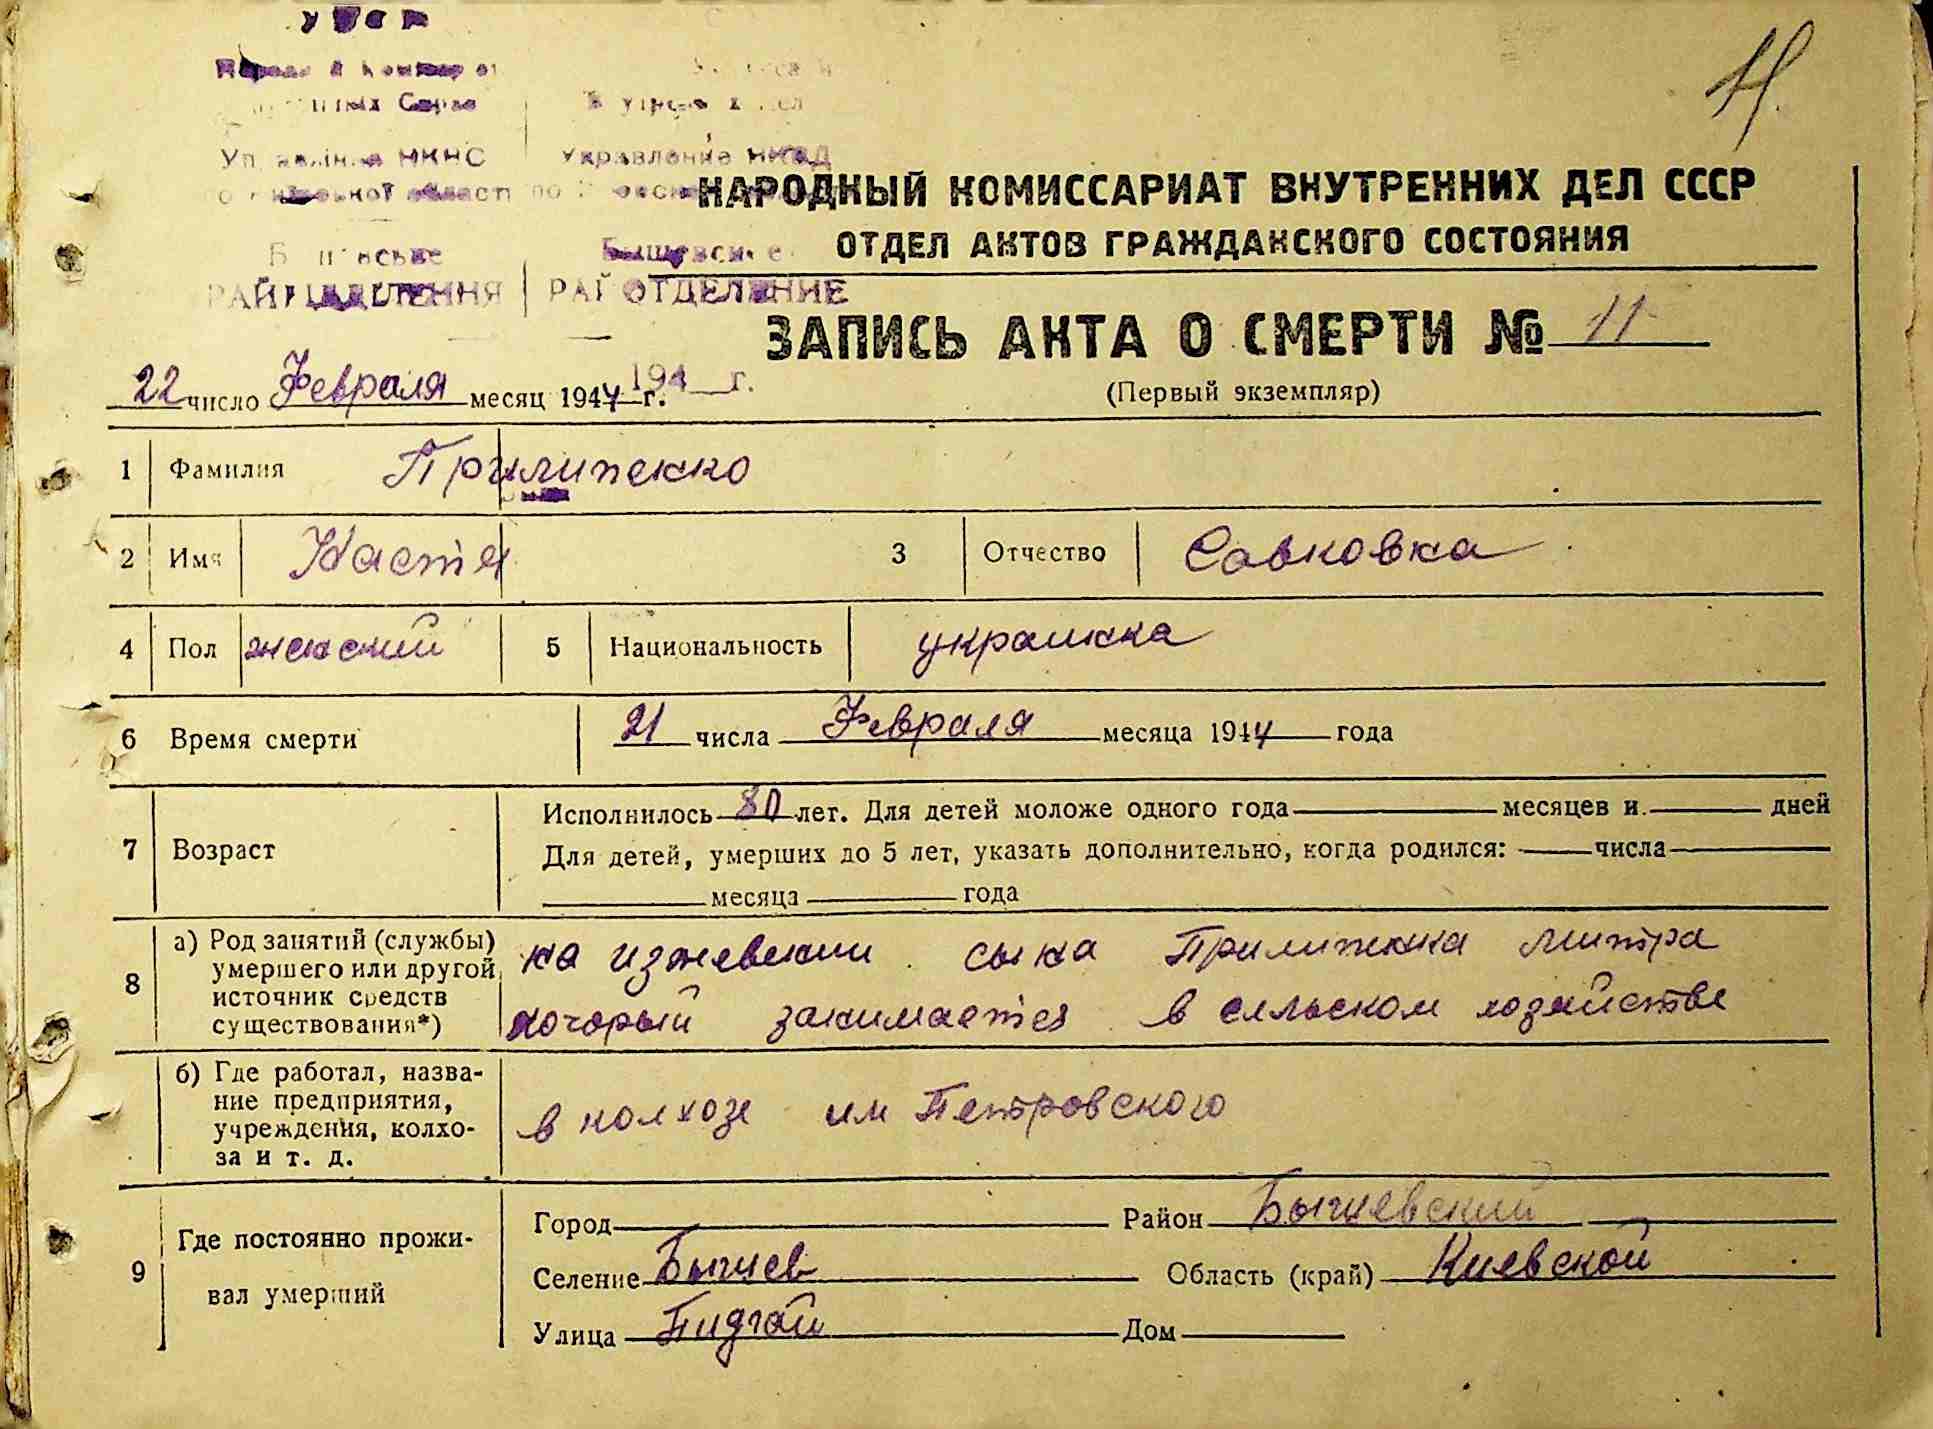 УССР
11.
Управління НКВС | Управление НКВД
НАРОДНЫЙ КОМИССАРИАТ ВНУТРЕННИХ ДЕЛ СССР
ОТДЕЛ АКТОВ ГРАЖДАНСКОГО СОСТОЯНИЯ
Бышевское
РАЙВІДДІЛЕННЯ | РАЙОТДЕЛЕНИЕ
ЗАПИСЬ АКТА О СМЕРТИ № 11
194 г.
22 число Февраля месяц 1944 г.
(Первый экземпляр)
1 Фамилия Прилипенко
2 Имя Настя 3 Отчество Савковна
4 Пол женский 5 Национальность украинка
6 Время смерти 21 числа Февраля месяца 1944 года
7 Возраст
Исполнилось 80 лет. Для детей моложе одного года месяцев и дней
Для детей, умерших до 5 лет, указать дополнительно, когда родился: числа
месяца года
8 а) Род занятий (службы)
умершего или другой
источник средств
существования*)
на изжевении сына Прилипенка Митра
который занимается в сельском хозяйстве
б) Где работал, назва-
ние предприятия,
учреждения, колхо-
за и т. д.
в колхозе им Петровского
9 Где постоянно прожи-
вал умерший
Город Район Бышевский
Селение Бышев Область (край) Киевской
Улица Пидгай Дом